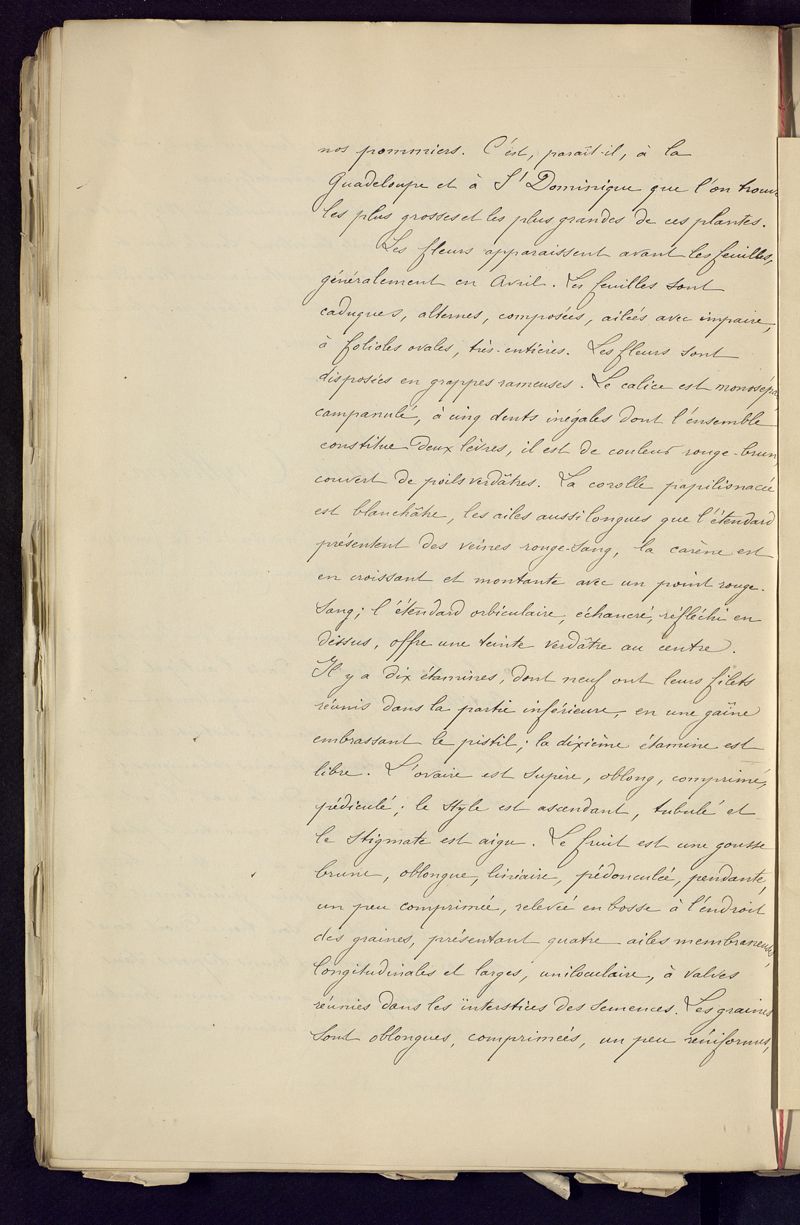 nos pommiers. C'est, paraît-il, à la
Guadeloupe et à St Dominique que l'on trouve
les plus grosses et les plus grandes de ces plantes.
Les fleurs apparaissent avant les feuilles,
généralement en Avril. Les feuilles sont
caduques, alternes, composées, ailées avec impaire,
à folioles ovales, très-entières. Les fleurs sont
disposées en grappes rameuses. Le calice est monosépa
campanulé, à cinq dents inégales dont l'ensemble
constitue deux lèvres, il est de couleur rouge-brun,
couvert de poils verdâtres. La corolle papilionacée
est blanchâtre, les ailes aussi longues que l'étendard
présentent des veines rouge-sang, la carène est
en croissant et montante avec un point rouge-
sang; l'étendard orbiculaire, échancré, réfléchi en
dessus, offre une teinte verdâtre au centre.
Il y a dix étamines, dont neuf ont leurs filets
réunis dans la partie inférieure, en une gaîne
embrassant le pistil; la dixième étamine est
libre. L'ovaire est supère, oblong, comprimé,
pédiculé; le style est ascendant, tubulé et
le stigmate est aigu. Le fruit est une gousse
brune, oblongue, linéaire, pédonculée, pendante,
un peu comprimée, relevée en bosse à l'endroit
des graines, présentant quatre ailes membraneuses,
longitudinales et larges, uniloculaire, à valves
réunies dans les interstices des semences. Les graines
sont oblongues, comprimées, un peu réniformes,